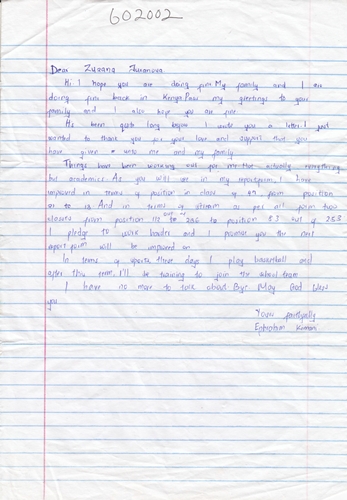 602002
Dear Zuzana
Hi! I hope you are doing fine. My family and I are
doing fine back in Kenya. Pass my greetings to your
family and I also hope you are fine
It's been quite long before I wrote you a letter. I just
wanted to thank you for your love and support that you
have given unto me and my family
Things have been working out for me actually everything
but academics. As you will see in my report form, I have
improved in terms of position in class of 49 from position
to 13. And in terms of stream as per all form two
classes from position 112 out of 256 to position 83 out of 253
I pledge to work harder and I promise you the next
report form will be improved on
In terms of sports these days I play basketball and
after this term, I'll be training to join the school team
I have no more to talk about. Bye! May God bless
you
Yours faithfully
Ephraim